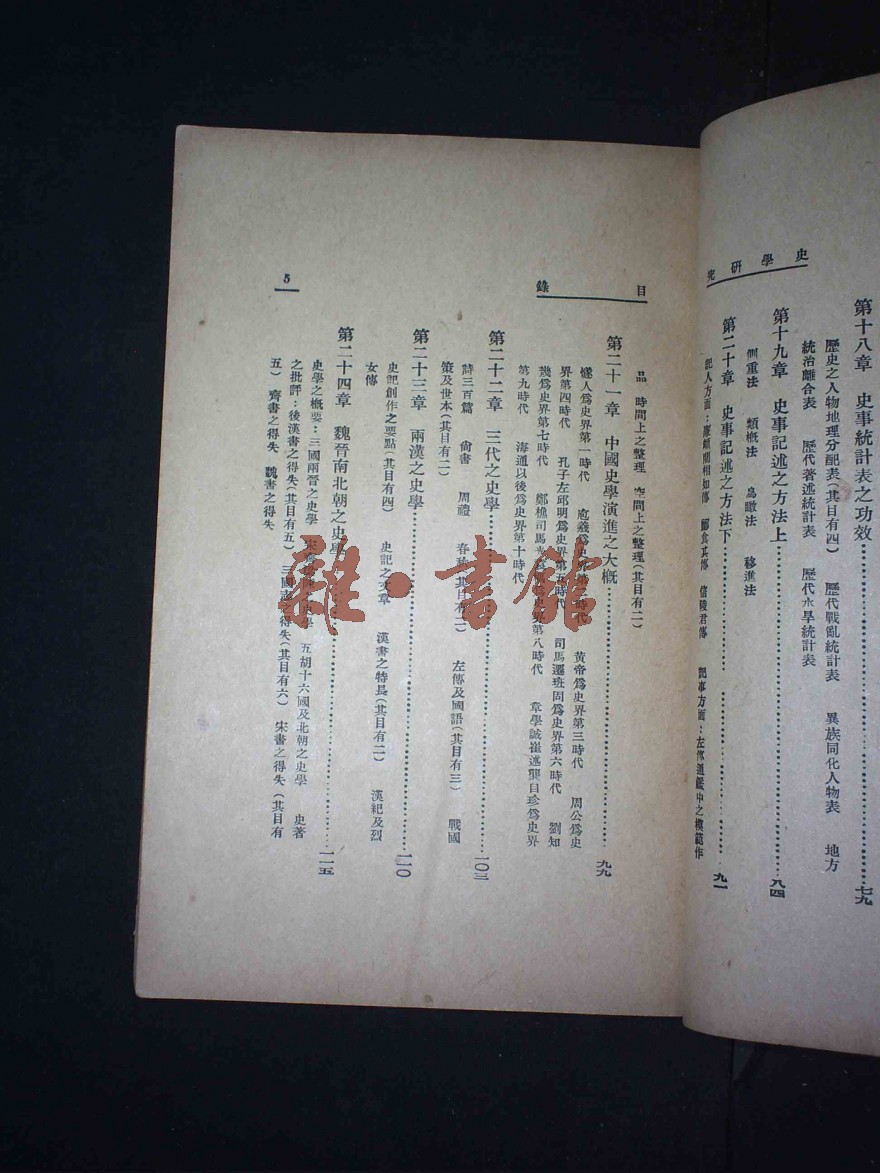 史學研究
第十八章　史事統計表之功效……七九
歷史之人物地理分配表（其目有四）　歷代戰亂統計表　異族同化人物表　地方
統治離合表　歷代著述統計表　歷代水旱統計表
第十九章　史事記述之方法上……八四
側重法　類概法　鳥瞰法　移進法
第二十章　史事記述之方法下……九一
記人方面：廉頗藺相如傳　酈食其傳　信陵君傳　記事方面：左傳通鑑中之模範作
目錄
品　時間上之整理　空間上之整理（其目有二）
第二十一章　中國史學演進之大概……九九
燧人爲史界第一時代　庖羲爲史界第二時代　黃帝爲史界第三時代　周公爲史
界第四時代　孔子左邱明爲史界第五時代　司馬遷班固爲史界第六時代　劉知
幾爲史界第七時代　鄭樵司馬光爲史界第八時代　章學誠崔述龔自珍爲史界
第九時代　海通以後爲史界第十時代
第二十二章　三代之史學……一〇三
詩三百篇　尙書　周禮　春秋（其目有二）　左傳及國語（其目有三）　戰國
策及世本（其目有二）
第二十三章　兩漢之史學……一一〇
史記創作之要點（其目有四）　史記之文章　漢書之特長（其目有二）　漢紀及烈
女傳
第二十四章　魏晉南北朝之史學……一一五
史學之概要：三國兩晉之史學　宋齊　之史學　五胡十六國及北朝之史學　史著
之批評：後漢書之得失（其目有五）　三國志之得失（其目有六）　宋書之得失（其目有
五）　齊書之得失　魏書之得失
5
雜·書館